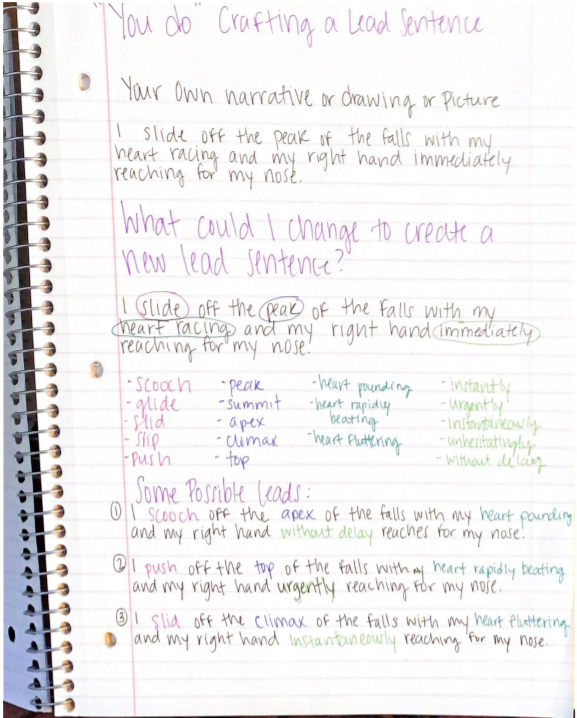 "You do" Crafting a Lead Sentence
Your Own narrative or drawing or Picture
I slide off the peak of the falls with my
heart racing and my right hand immediately
reaching for my nose.
What could I change to create a
new lead sentence?
I slide off the peak of the falls with my
heart racing and my right hand immediately
reaching for my nose.
-scooch -peak -heart pounding -instantly
-glide -summit -heart rapidly -urgently
-slid -apex beating -instantaneously
-slip -climax -heart fluttering -unhesitatingly
-push -top -without delay
Some Possible Leads:
① I scooch off the apex of the falls with my heart pounding
and my right hand without delay reaches for my nose.
② I push off the top of the falls with my heart rapidly beating
and my right hand urgently reaching for my nose.
③ I slid off the climax of the falls with my heart fluttering
and my right hand instantaneously reaching for my nose.